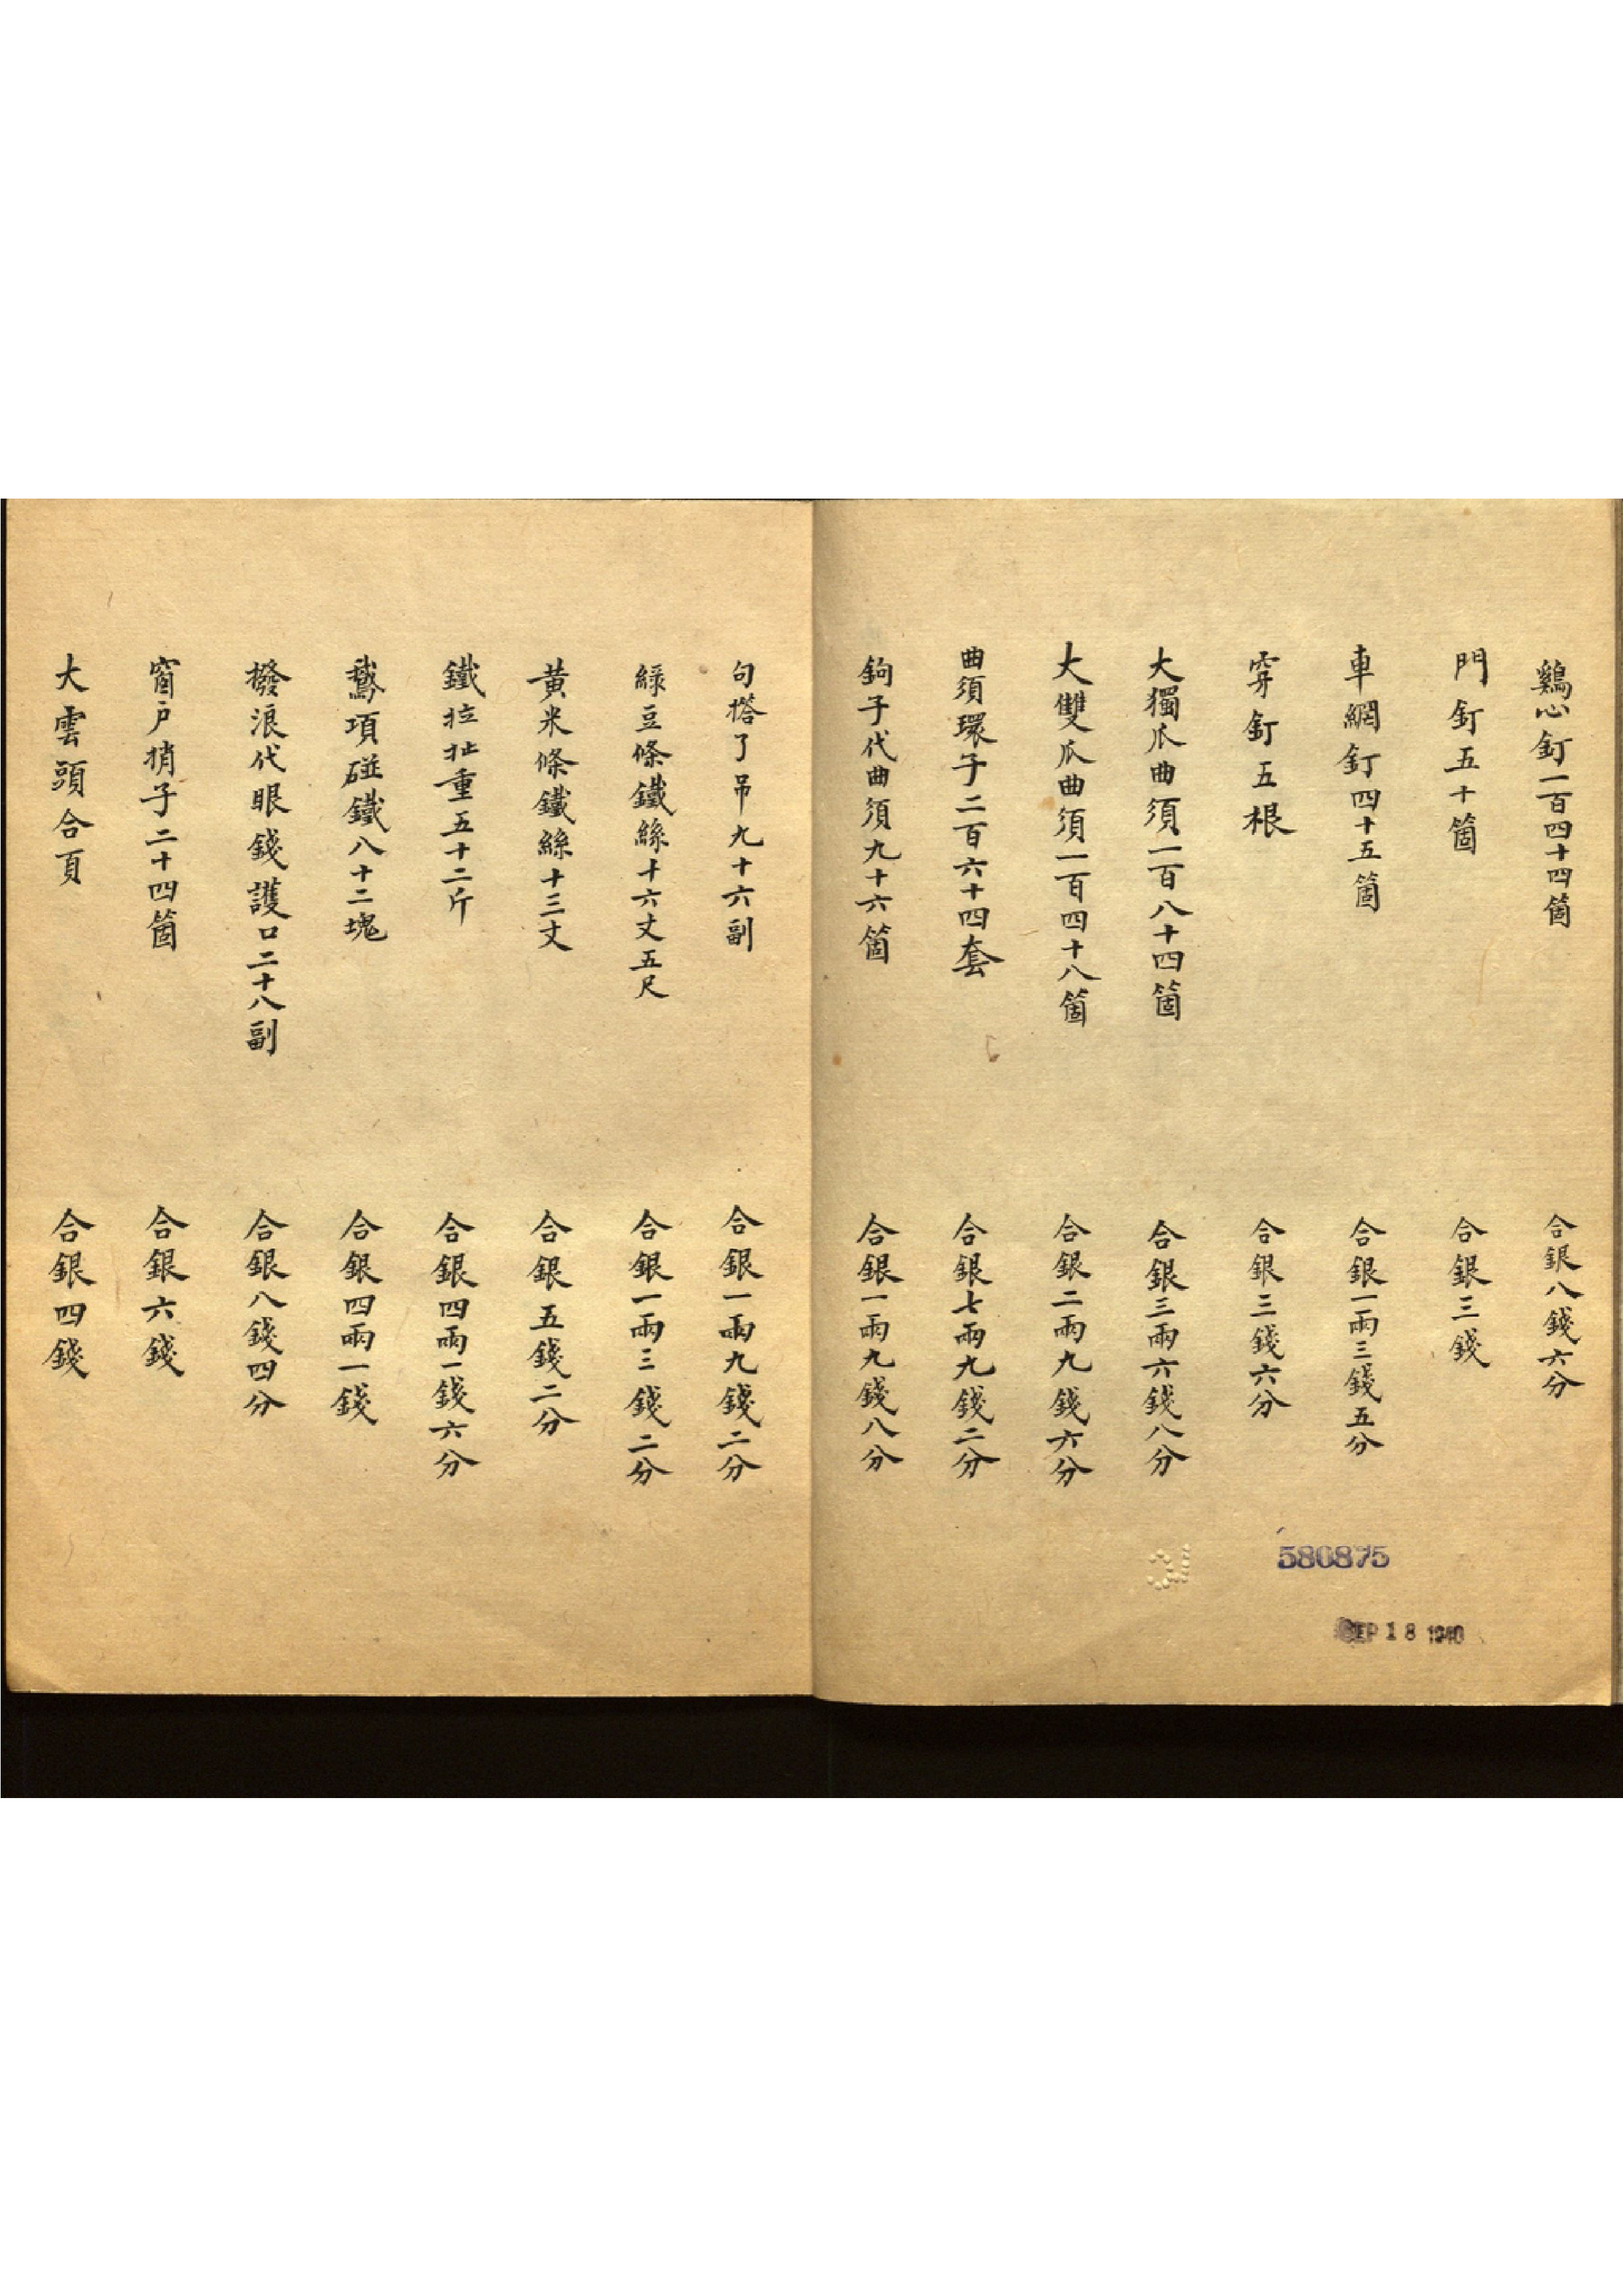 鷄心釘一百四十四箇 合銀八錢六分
門釘五十箇 合銀三錢
車網釘四十五箇 合銀一兩三錢五分
穿釘五根 合銀三錢六分
大獨爪曲須一百八十四箇 合銀三兩六錢八分
大雙爪曲須一百四十八箇 合銀二兩九錢六分
曲須環子二百六十四套 合銀七兩九錢二分
鉤子代曲須九十六箇 合銀一兩九錢八分
句搭了吊九十六副 合銀一兩九錢二分
綠豆條鐵絲十六丈五尺 合銀一兩三錢二分
黃米條鐵絲十三丈 合銀五錢二分
鐵拉扯重五十二斤 合銀四兩一錢六分
鵞項碰鐵八十二塊 合銀四兩一錢
撥浪代眼錢護口二十八副 合銀八錢四分
窗戶捎子二十四箇 合銀六錢
大雲頭合頁 合銀四錢
580875
SEP 18 1940